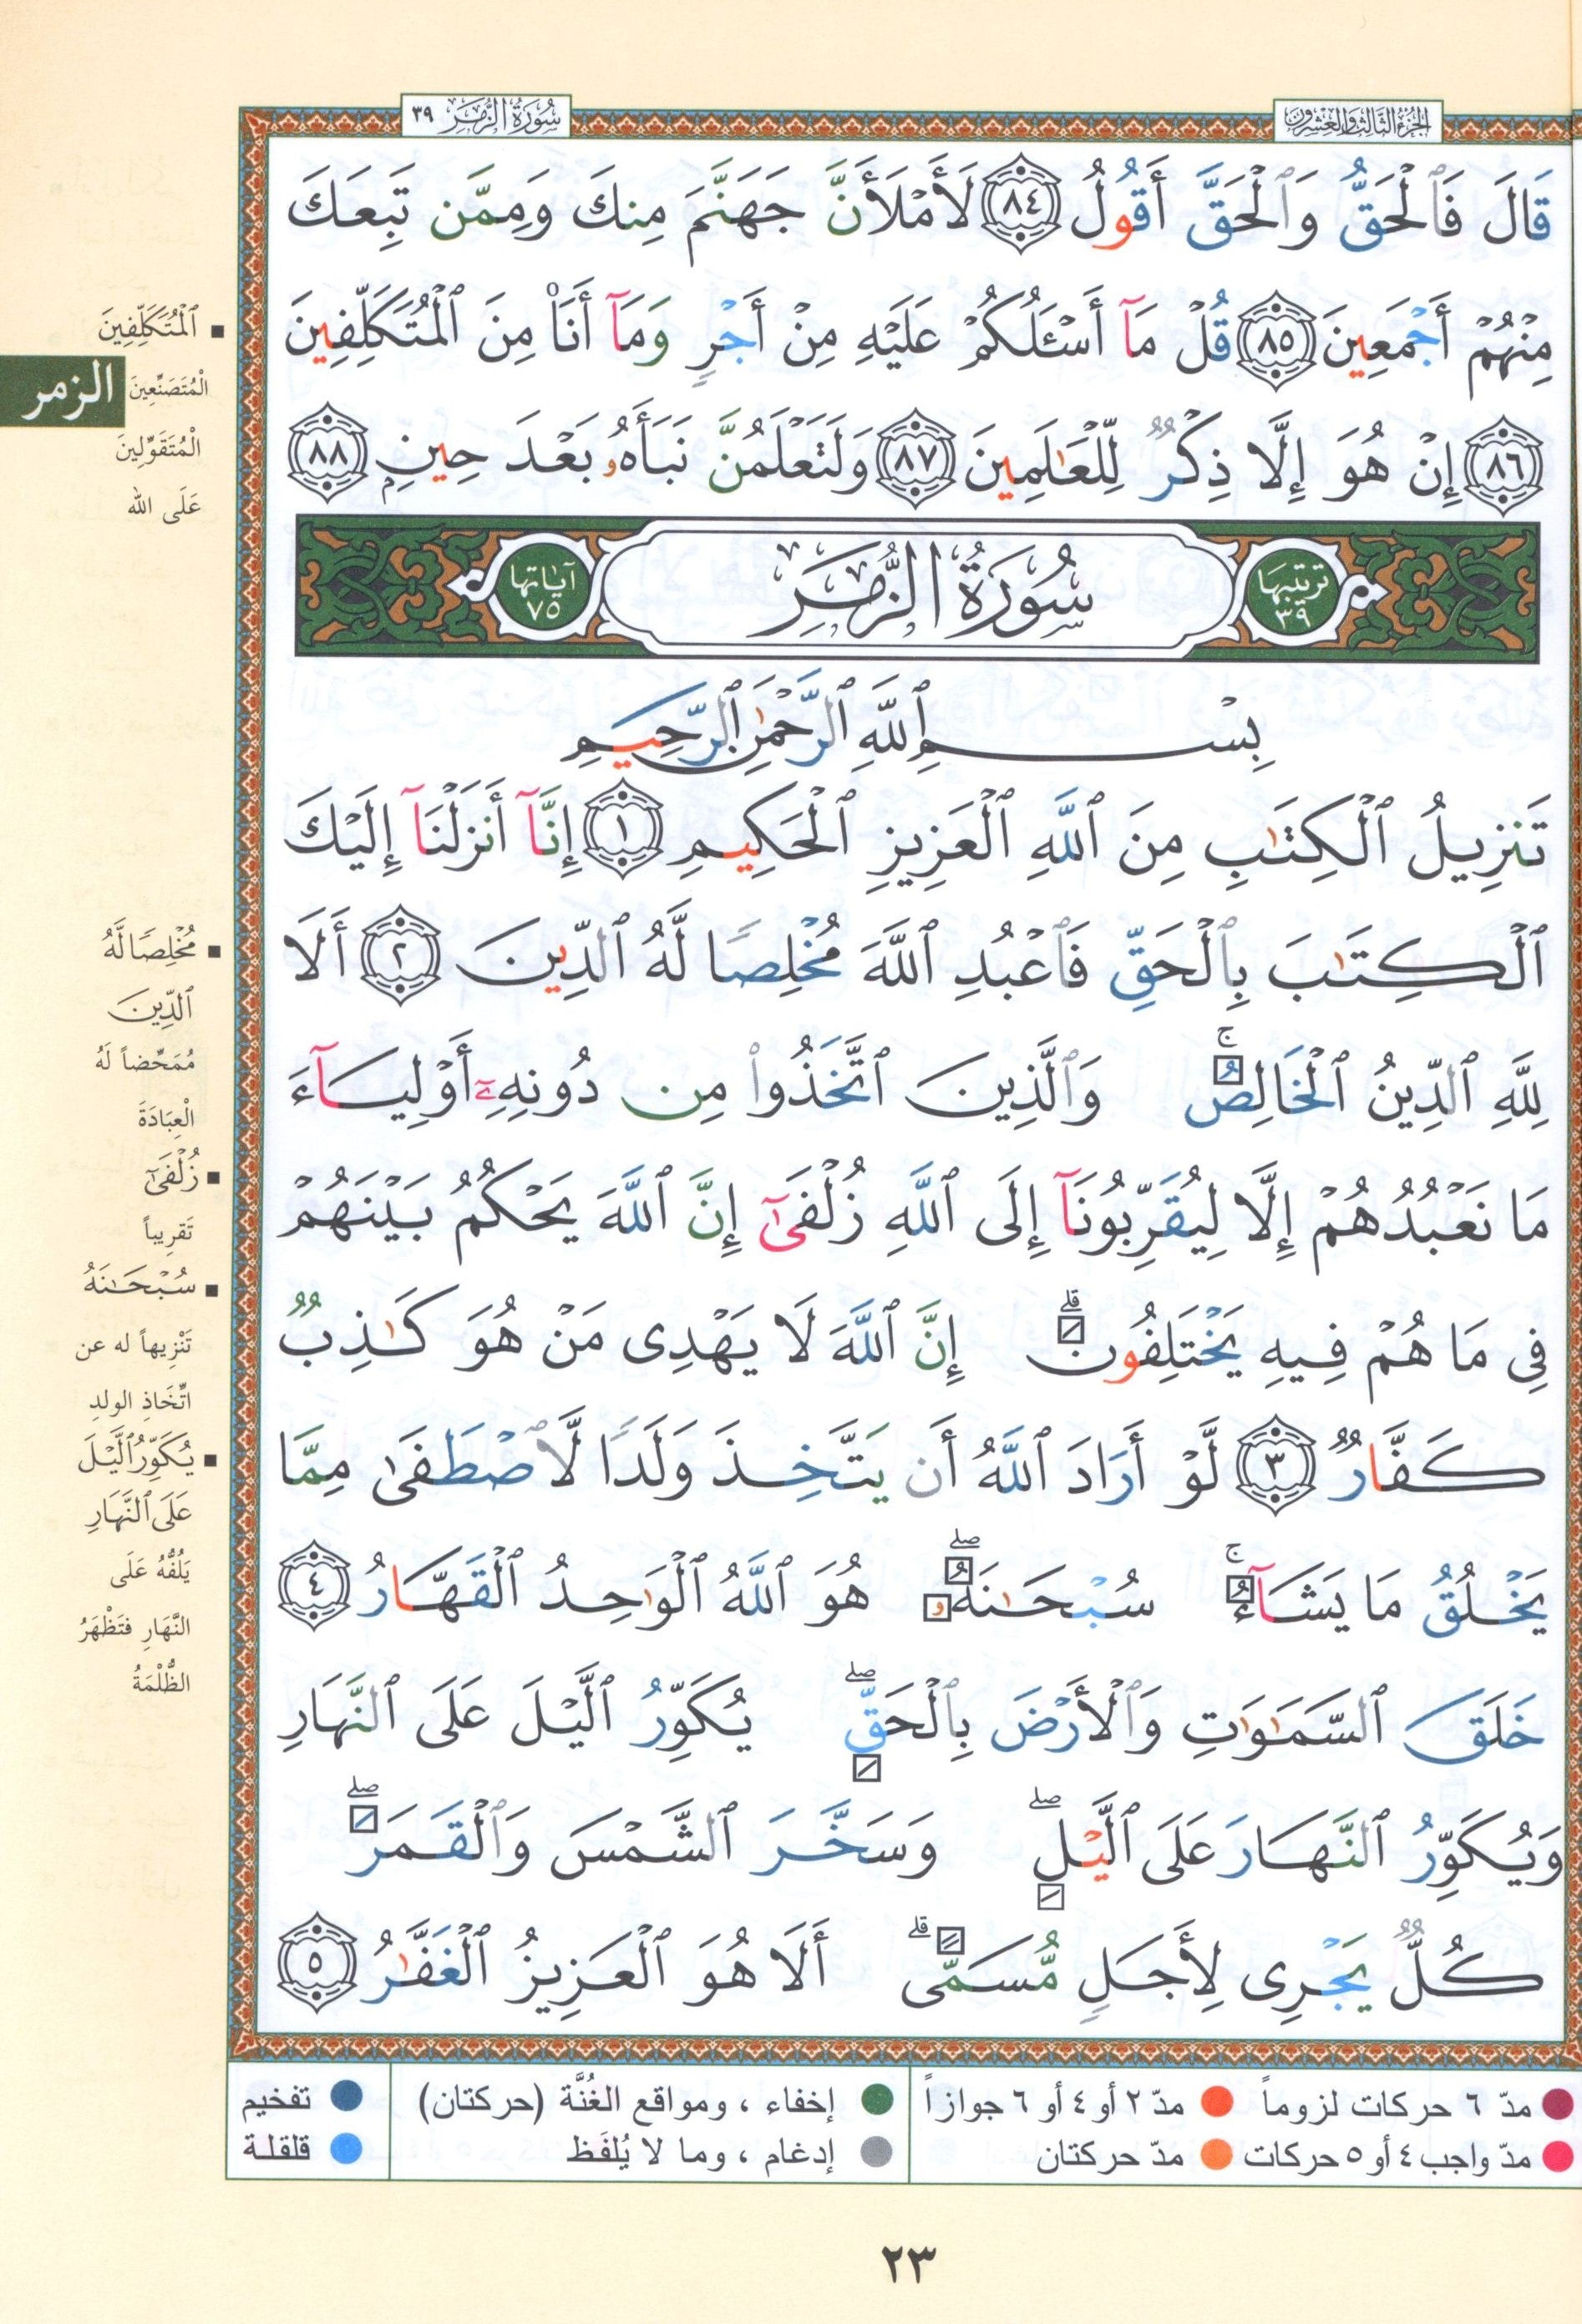 الجزء الثالث والعشرون
سورة الزمر ٣٩
قَالَ فَٱلْحَقُّ وَٱلْحَقَّ أَقُولُ ٨٤ لَأَمْلَأَنَّ جَهَنَّمَ مِنكَ وَمِمَّن تَبِعَكَ
مِنْهُمْ أَجْمَعِينَ ٨٥ قُلْ مَآ أَسْـَٔلُكُمْ عَلَيْهِ مِنْ أَجْرٍ وَمَآ أَنَا۠ مِنَ ٱلْمُتَكَلِّفِينَ
٨٦ إِنْ هُوَ إِلَّا ذِكْرٌ لِّلْعَٰلَمِينَ ٨٧ وَلَتَعْلَمُنَّ نَبَأَهُۥ بَعْدَ حِينٍۭ ٨٨
ترتيبها ٣٩ سُورَةُ الزُّمَرِ آياتها ٧٥
بِسْمِ ٱللَّهِ ٱلرَّحْمَٰنِ ٱلرَّحِيمِ
تَنزِيلُ ٱلْكِتَٰبِ مِنَ ٱللَّهِ ٱلْعَزِيزِ ٱلْحَكِيمِ ١ إِنَّآ أَنزَلْنَآ إِلَيْكَ
ٱلْكِتَٰبَ بِٱلْحَقِّ فَٱعْبُدِ ٱللَّهَ مُخْلِصًا لَّهُ ٱلدِّينَ ٢ أَلَا
لِلَّهِ ٱلدِّينُ ٱلْخَالِصُ ۚ وَٱلَّذِينَ ٱتَّخَذُوا۟ مِن دُونِهِۦٓ أَوْلِيَآءَ
مَا نَعْبُدُهُمْ إِلَّا لِيُقَرِّبُونَآ إِلَى ٱللَّهِ زُلْفَىٰٓ إِنَّ ٱللَّهَ يَحْكُمُ بَيْنَهُمْ
فِى مَا هُمْ فِيهِ يَخْتَلِفُونَ ۗ إِنَّ ٱللَّهَ لَا يَهْدِى مَنْ هُوَ كَٰذِبٌ
كَفَّارٌ ٣ لَّوْ أَرَادَ ٱللَّهُ أَن يَتَّخِذَ وَلَدًا لَّٱصْطَفَىٰ مِمَّا
يَخْلُقُ مَا يَشَآءُ ۚ سُبْحَٰنَهُۥ ۖ هُوَ ٱللَّهُ ٱلْوَٰحِدُ ٱلْقَهَّارُ ٤
خَلَقَ ٱلسَّمَٰوَٰتِ وَٱلْأَرْضَ بِٱلْحَقِّ ۖ يُكَوِّرُ ٱلَّيْلَ عَلَى ٱلنَّهَارِ
وَيُكَوِّرُ ٱلنَّهَارَ عَلَى ٱلَّيْلِ ۖ وَسَخَّرَ ٱلشَّمْسَ وَٱلْقَمَرَ ۖ
كُلٌّ يَجْرِى لِأَجَلٍ مُّسَمًّى ۗ أَلَا هُوَ ٱلْعَزِيزُ ٱلْغَفَّٰرُ ٥
ٱلْمُتَكَلِّفِينَ
الزمر
الْمُتَصَنِّعِينَ
الْمُتَقَوِّلِينَ
عَلَى الله
مُخْلِصًا لَّهُ
ٱلدِّينَ
مُمَحِّضاً لَهُ
الْعِبَادَةَ
زُلْفَىٰٓ
تَقرِيباً
سُبْحَٰنَهُ
تَنْزِيهاً له عن
اتِّخَاذِ الولدِ
يُكَوِّرُ ٱلَّيْلَ
عَلَى ٱلنَّهَارِ
يَلُفُّهُ عَلَى
النَّهَارِ فتَظْهَرُ
الظُّلْمَةُ
مدّ ٦ حركات لزوماً مدّ ٢ أو ٤ أو ٦ جوازاً
مدّ واجب ٤ أو ٥ حركات مدّ حركتان
إخفاء ، ومواقع الغُنَّة (حركتان)
إدغام ، وما لا يُلفَظ
تفخيم
قلقلة
٢٣